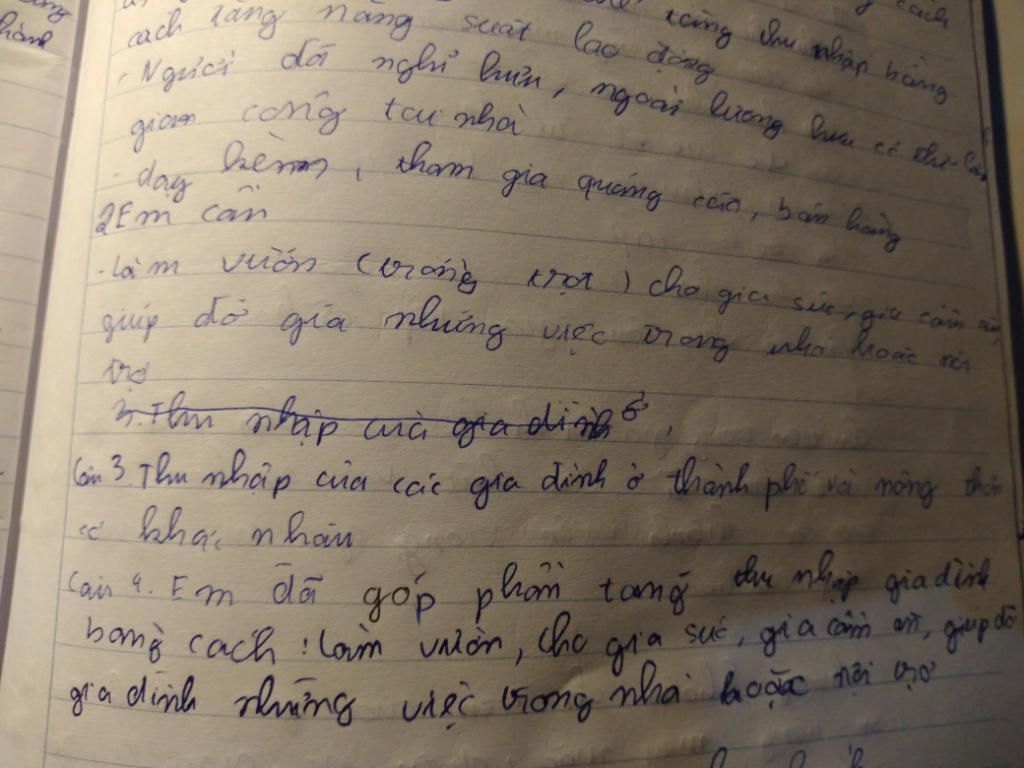 hành
thu nhập bằng cách
cách tăng năng suất lao động
- Người đã nghỉ hưu, ngoài lương hưu có thể làm
gian công tại nhà
- dạy kèm, tham gia quảng cáo, bán hàng
2 Em cần
- làm vườn (trồng trọt) cho gia súc, gia cầm ăn,
giúp đỡ gia những việc trong nhà hoặc nội
trợ
3. Thu nhập của gia đình ở
Câu 3 Thu nhập của các gia đình ở thành phố và nông thôn
có khác nhau
Câu 4. Em đã góp phần tăng thu nhập gia đình
bằng cách: làm vườn, cho gia súc, gia cầm ăn, giúp đỡ
gia đình những việc trong nhà hoặc nội trợ